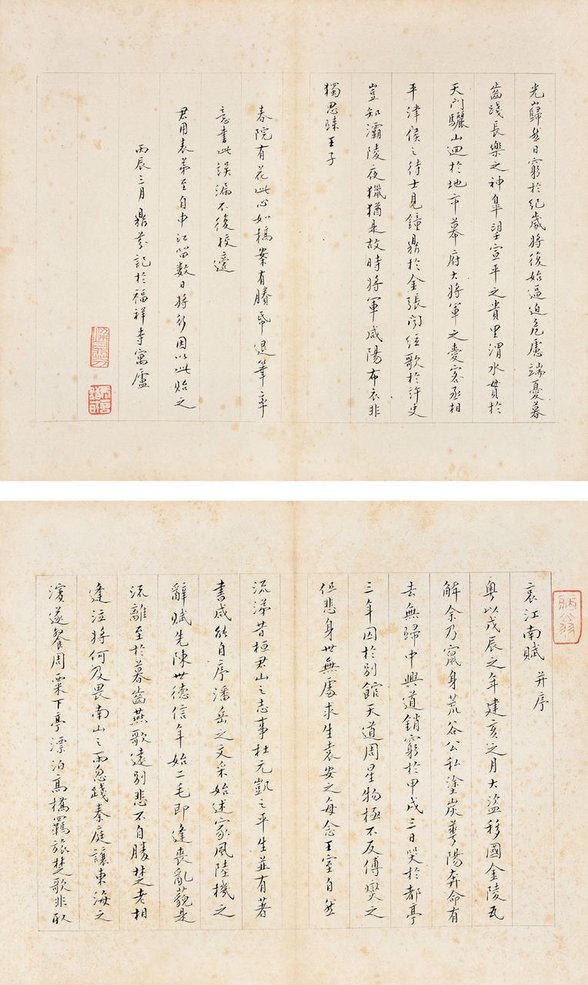 光歸其日窮於紀歲將復始逼迫危慮端憂暮
齒踐長樂之神皋望宣平之貴里渭水貫於
天門驪山迴於地市幕府大將軍之愛客丞相
平津侯之待士見鐘鼎於金張聞絃歌於許史
豈知灞陵夜獵猶是故時將軍咸陽布衣非
獨思歸王子
春院有花此心如槁案有賸帋退筆率
意書此誤漏不復校
君用表弟至自中江留數日將行因以此貽之
丙辰三月鼎芬記於福祥寺寓廬
哀江南賦 并序
粵以戊辰之年建亥之月大盜移國金陵瓦
解余乃竄身荒谷公私塗炭華陽奔命有
去無歸中興道銷窮於甲戌三日哭於都亭
三年囚於別館天道周星物極不反傅燮之
但悲身世無處求生袁安之每念王室自然
流涕昔桓君山之志事杜元凱之平生並有著
書咸能自序潘岳之文采始述家風陸機之
辭賦先陳世德信年始二毛即逢喪亂藐是
流離至於暮齒燕歌遠別悲不自勝楚老相
逢泣將何及畏南山之雨忽踐秦庭讓東海之
濱遂餐周粟下亭漂泊高橋羈旅楚歌非取